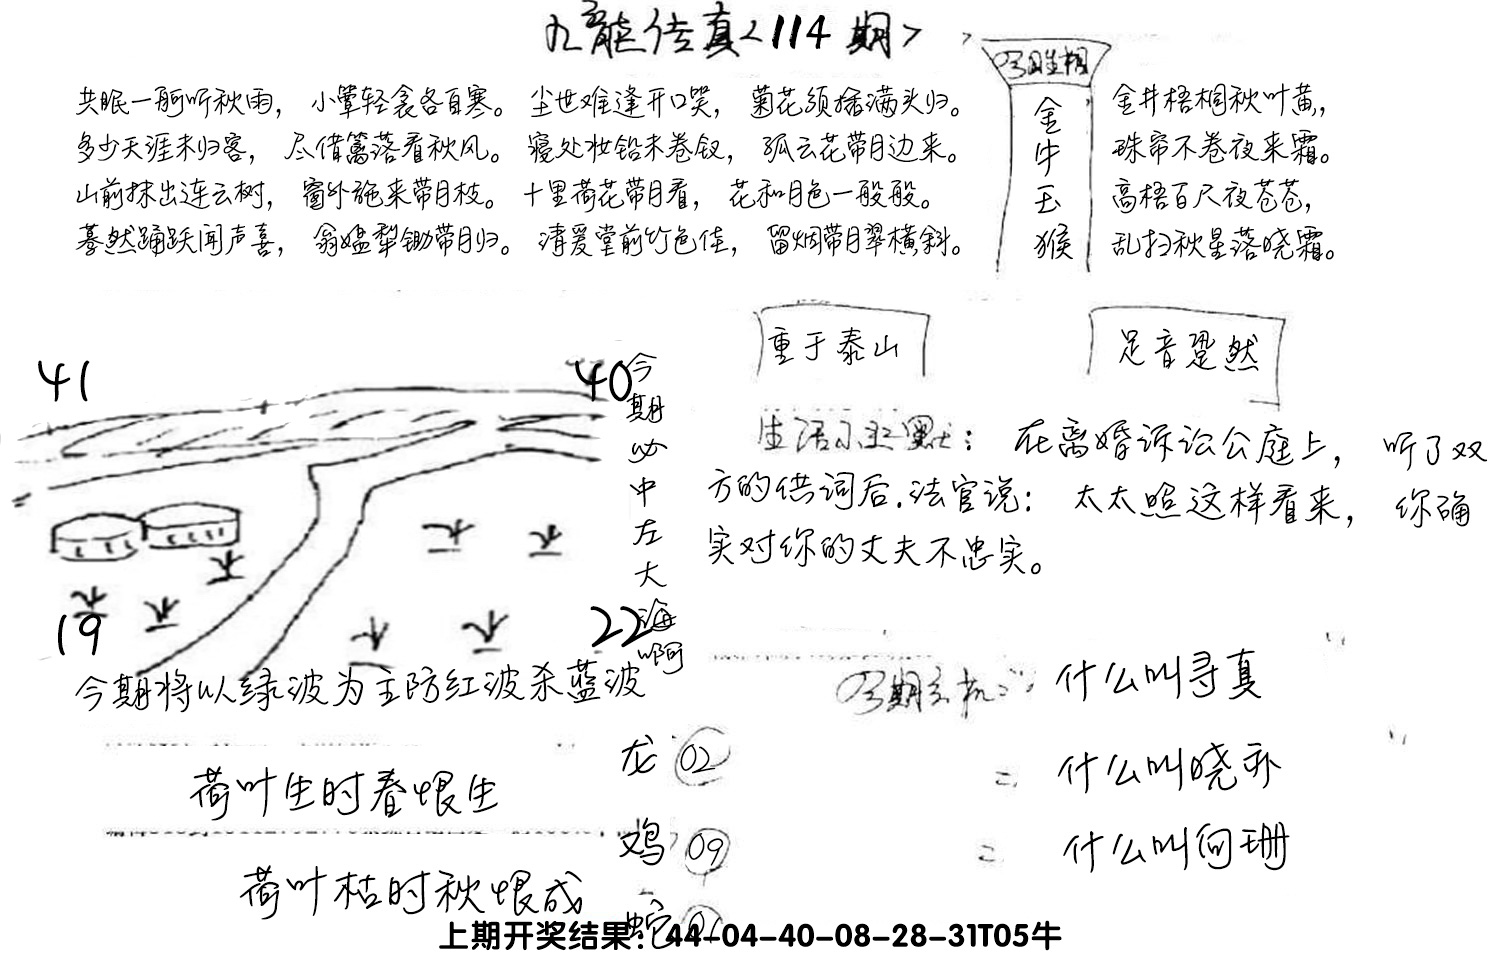 九龍传真<114期>
今期生相
共眠一舸听秋雨，小簟轻衾各自寒。尘世难逢开口笑，菊花须插满头归。
多少天涯未归客，尽借篱落看秋风。寝处妆铅未卷钗，孤云花带月边来。
山前抹出连云树，窗外施来带月枝。十里荷花带月看，花和月色一般般。
蓦然踊跃闻声喜，翁媪犁锄带月归。清爱堂前竹色佳，留烟带月翠横斜。
金牛玉猴
金井梧桐秋叶黄，
珠帘不卷夜来霜。
高梧百尺夜苍苍，
乱扫秋星落晓霜。
重于泰山
足音跫然
41
40
今期必中左大海啊
19
22
生活小幽默：在离婚诉讼公庭上，听了双
方的供词后.法官说：太太照这样看来，你确
实对你的丈夫不忠实。
今期将以绿波为主防红波杀蓝波
今期玄机：什么叫寻真
什么叫晓乔
什么叫向珊
荷叶生时春恨生
荷叶枯时秋恨成
龙 02
鸡 09
蛇 01
上期开奖结果：44-04-40-08-28-31T05牛